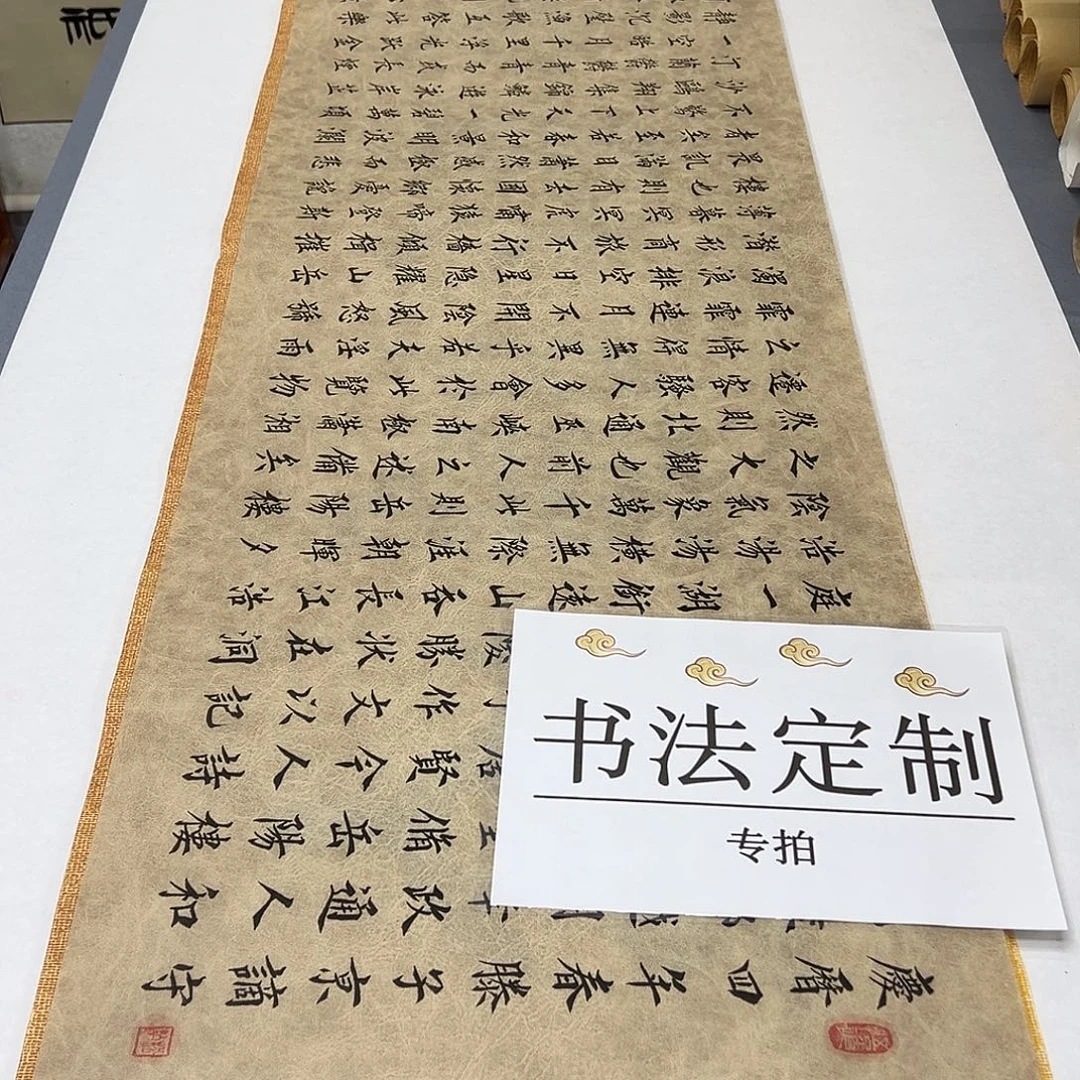 慶曆四年春滕子京謫守
政通人和
脩岳陽樓
賢今人詩
作文以記
勝狀在洞
庭一湖銜遠山吞長江浩
浩湯湯橫無際涯朝暉夕
陰氣象萬千此則岳陽樓
之大觀也前人之述備矣
然則北通巫峽南極瀟湘
遷客騷人多會於此覽物
之情得無異乎若夫淫雨
霏霏連月不開陰風怒號
濁浪排空日星隱耀山岳
潛形商旅不行檣傾楫摧
薄暮冥冥虎嘯猿啼登斯
樓也則有去國懷鄉憂讒
畏譏滿目蕭然感極而悲
者矣至若春和景明波瀾
不驚上下天光一碧萬頃
沙鷗翔集錦鱗遊泳岸芷
汀蘭
一空皓月千里浮光躍金
靜影沉璧漁歌互答此樂
书法定制
专拍